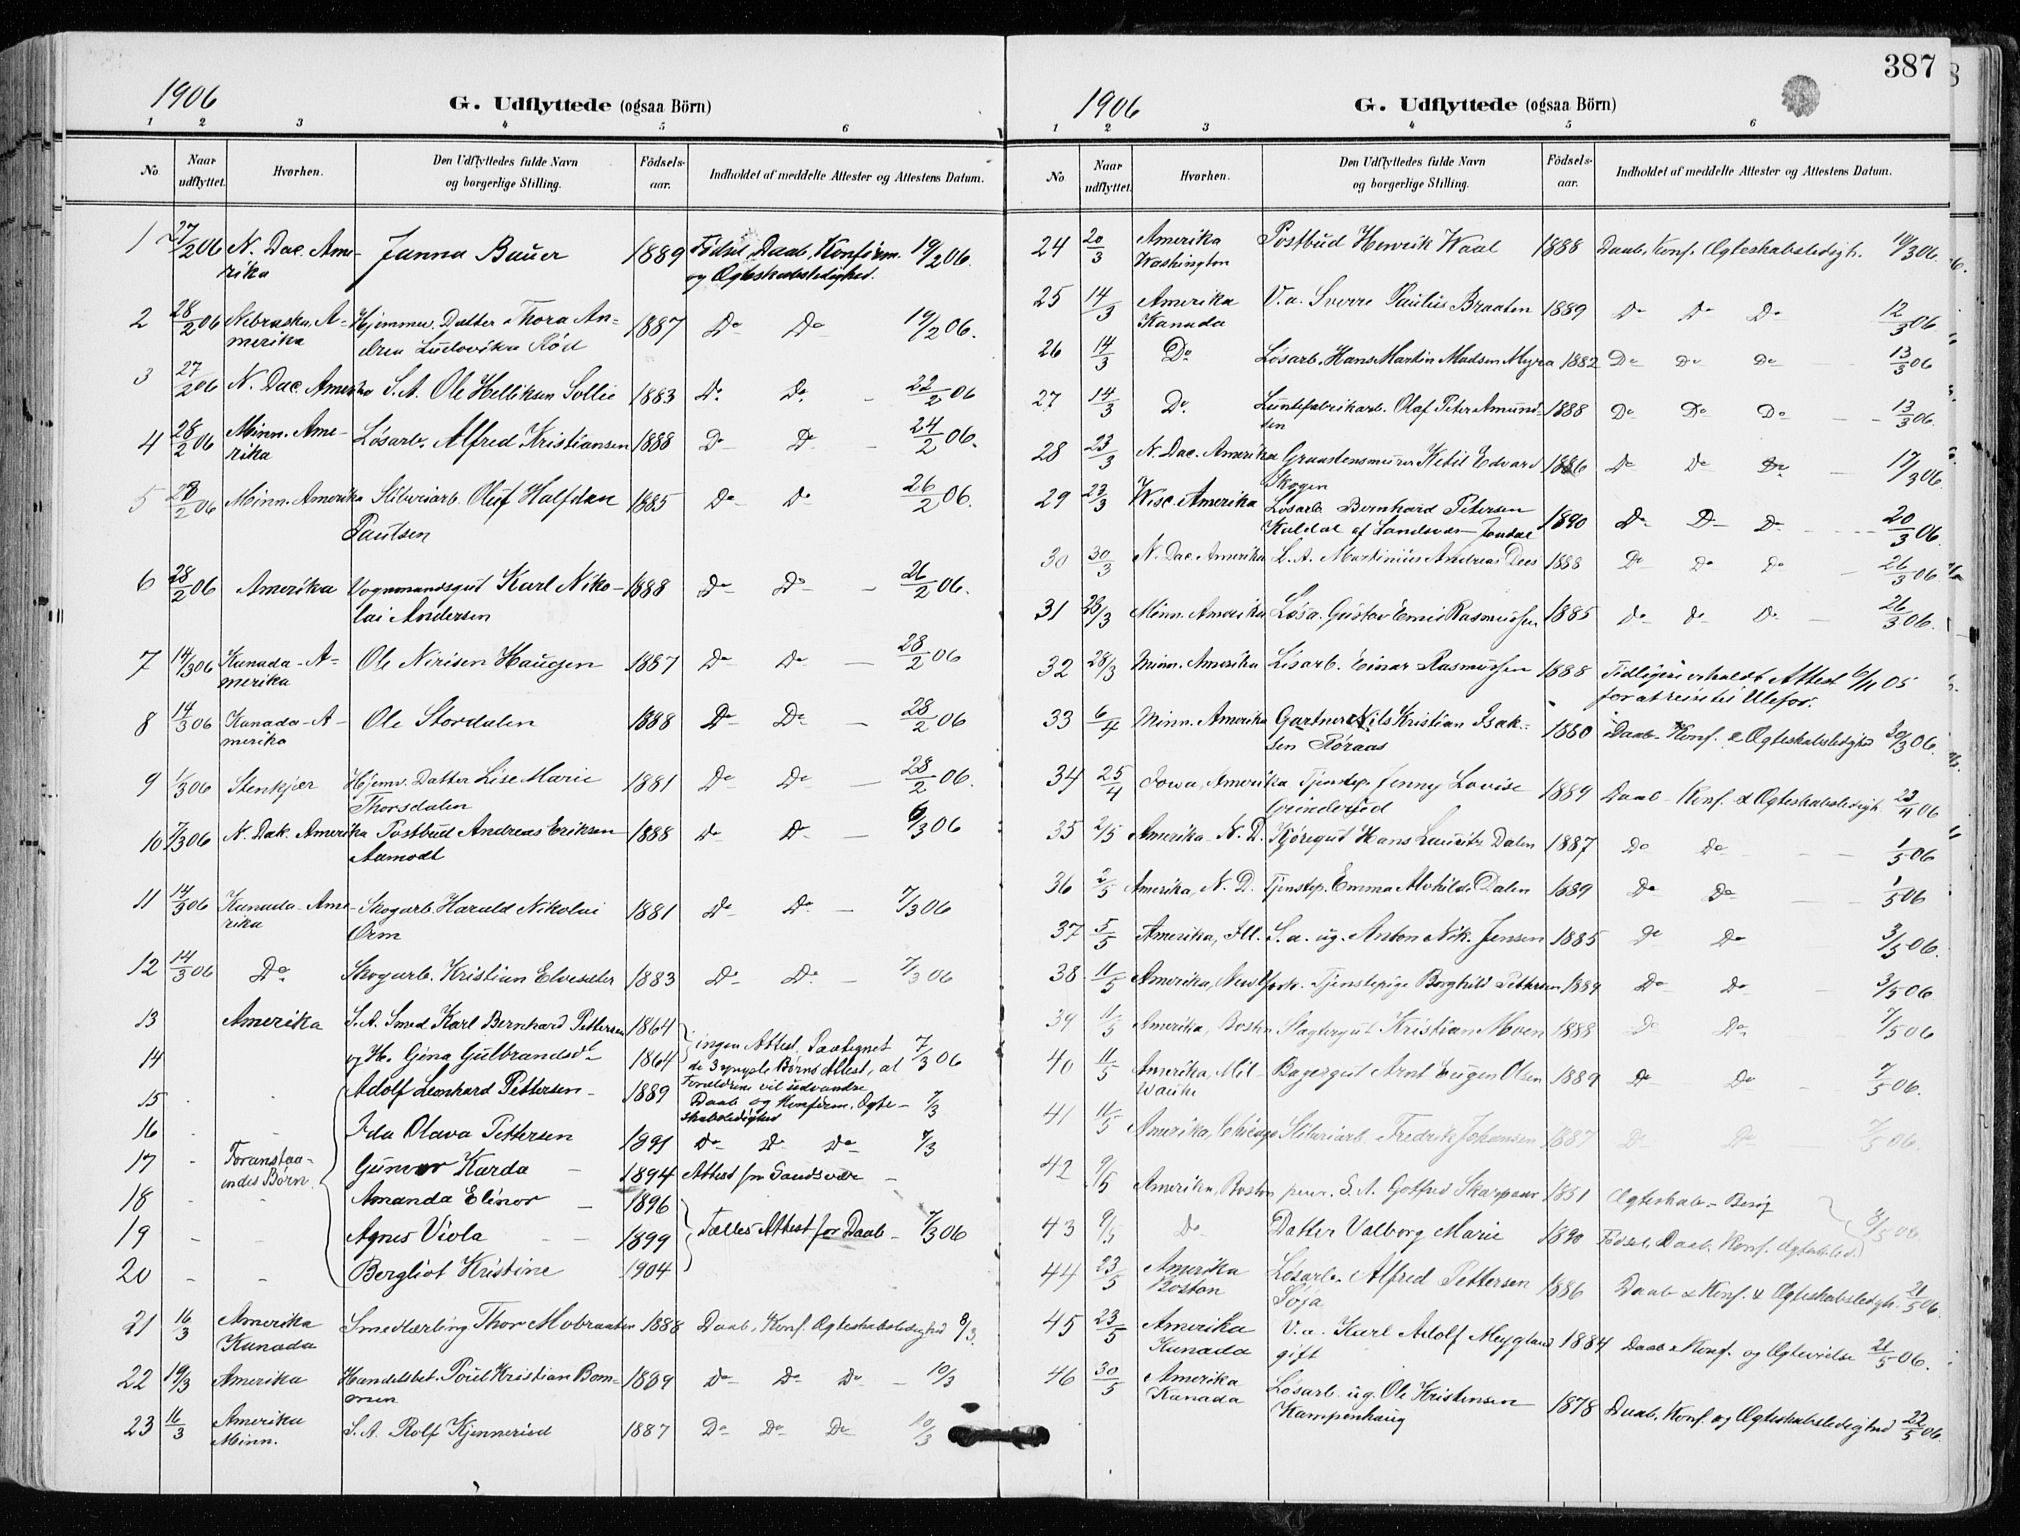 387
1906
G. Udflyttede (ogsaa Börn)
1 2 3 4 5 6
No
Naar udflyttet.
Hvorhen.
Den Udflyttedes fulde Navn og borgerlige Stilling.
Födselsaar.
Indholdet af meddelte Attester og Attestens Datum.
1 27/2 06 N. Dac. Ame- Janna Bauer 1889 Födsel, Daab, Konfirm. 19/2 06.
rika og Ægteskabsledighed.
2 28/2 06 Nebraska, A- Hjemmev. Datter Thora An- 1887 Do Do 19/2 06.
merika drea Ludovika Röd
3 27/2 06 N. Dac. Amerika S. A. Ole Helliksen Sollie 1883 Do Do - 22/2 06
4 28/2 06 Minn. Ame- Løsarb. Alfred Kristiansen 1888 Do Do - 24/2 06.
rika
5 28/2 06 Minn. Amerika Sliberiarb. Oluf Halfdan 1885 Do Do 26/2 06.
Paulsen
6 28/2 06 Amerika Vognmandsgut Karl Niko- 1888 Do Do - 26/2 06.
lai Andersen
7 14/3 06 Kanada - A- Ole Nirisen Haugen 1887 Do Do - 28/2 06
merika
8 14/3 06 Kanada - A- Ole Stordalen 1888 Do Do - 28/2 06
merika
9 1/3 06 Stenkjær Hjemv. Datter Lise Marie 1881 Do Do - 28/2 06.
Thorsdalen
10 7/3 06 N. Dak. Amerika Postbud Andreas Eriksen 1888 Do Do - 6/3 06
Aamodt
11 14/3 06 Kanada - Ame- Skogarb. Harald Nikolai 1881 Do Do - 7/3 06
rika Orm
12 14/3 06 Do Skogarb. Kristian Elvesæter 1883 Do Do - 7/3 06
13 Amerika S. A. Smed Karl Bernhard Pettersen 1864
14 og H. Gina Gulbrandsdt 1864 ingen Attest. Paategnet 7/3 06
de 3 yngste Børns Attest, at
Forældrene vil udvandre
15 - - Adolf Leonhard Pettersen - 1889 Daab og Konfirm. Ægte- 7/3
skabsledighed
16 - - Ida Olava Pettersen 1891 Do Do Do 7/3
17 - Foranstaa- Gunvor Karda - 1894 Attest fra Sandsvær -
endes Børn.
18 - - Amanda Elinor - 1896
19 - - Agnes Viola - - 1899 Fælles Attest for Daab - 7/3 06
20 - - Bergliot Kristine 1904
21 16/3 Amerika Smedlærling Thor Mobraaten 1888 Daab, Konf. Ægteskabsledighed 8/3.
Kanada
22 19/3 Amerika Handelsbet. Poul Kristian Bom- 1889 Do Do Do - 10/3
men
23 16/3 Amerika S. A. Rolf Kjennerud 1887 Do Do Do 10/3
Minn.
1906
G. Udflyttede (ogsaa Börn)
1 2 3 4 5 6
No
Naar udflyttet.
Hvorhen.
Den Udflyttedes fulde Navn og borgerlige Stilling.
Födselsaar.
Indholdet af meddelte Attester og Attestens Datum.
24 20/3 Amerika Postbud Henrik Waal 1888 Daab, Konf. Ægteskabsledigh. 10/3 06.
Washington
25 14/3 Amerika V. a. Sverre Paulus Braaten 1889 Do Do Do 12/3 06
Kanada
26 14/3 Do Løsarb. Hans Martin Madsen Myra 1882 Do Do Do 13/3 06
27 14/3 Do. Luntefabrikarb. Olaf Peter Amund- 1888 Do Do Do 13/3 06.
sen
28 23/3 N. Dac. Amerika Graastensmurer Ketil Edvard 1886 Do Do Do 17/3 06.
Skogen
29 23/3 Wisc. Amerika Løsarb. Bernhard Petersen 1890 Do Do Do 20/3 06.
Kaldal af Sandsvær - Jondal
30 30/3 N. Dac. Amerika L. A. Martinius Andreas Dees 1888 Do Do Do 26/3 06
31 28/3 Minn. Amerika Løsa. Gustav Emil Rasmussen 1885 Do Do Do 26/3 06.
32 28/3 Minn. Amerika Løsarb. Einar Rasmussen 1888 Tidligere erholdt Attest 6/11 05
for at reise til Ulefos.
33 6/4 Minn. Amerika Gartner Nils Kristian Isak- 1880 Daab - Konf. & Ægteskabsledighed 30/3 06.
sen Røraas
34 25/4 Iowa, Amerika Tjenstep. Jenny Lovise 1889 Daab - Konf. & Ægteskabsledigh. 23/4 06
Grinderud
35 2/5 Amerika - N. D. Kjöregut Hans Lauritz Dalen 1887 Do Do - - 1/5 06
36 2/5 Amerika, N. D. Tjenstep. Emma Alvhilde Dalen 1889 Do Do - - 1/5 06
37 5/5 Amerika, Ill. S. a. ug. Anton Nik. Jensen 1885 Do Do - 3/5 06.
38 11/5 Amerika, New York. Tjenstepige Borghild Pettersen 1889 Do Do - 3/5 06.
39 11/5 Amerika, Boston Slagtergut Kristian Moen 1888 Do Do 7/5 06
40 11/5 Amerika, Mil- Bagergut Arnt Eugen Olsen 1889 Do Do 7/5 06.
wauke
41 11/5 Amerika, Chicago Sliberiarb. Fredrik Johansen 1887 Do Do 7/5 06.
42 9/5 Amerika, Boston S. A. Gotfred Skarpaas 1851 Ægteskab -
43 9/5 Do Datter Valborg Marie 1890 Födsel, Daab, Konf. Ægteskabsled. 8/5 06
44 23/5 Amerika Løsarb. Alfred Pettersen 1886 Daab & Konf. & Ægteskabsledigh. 21/5 06.
Boston Søja
45 23/5 Amerika V. a. Karl Adolf Meygland 1884 Daab & Konf. og Ægtevielse 21/5 06.
Kanada gift
46 30/5 Amerika Løsarb. ug. Ole Kristensen 1878 Daab, Konf. og Ægteskabsledighed 22/5 06.
Kanada Kampenhaug